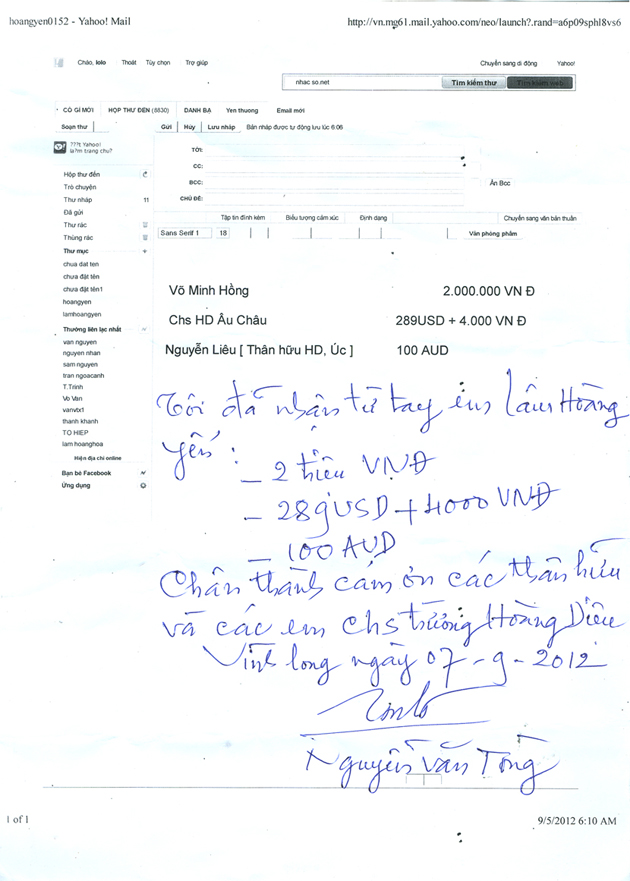 hoangyen0152 - Yahoo! Mail http://vn.mg61.mail.yahoo.com/neo/launch?.rand=a6p09sphl8vs6
Chào, lolo Thoát Tùy chọn Trợ giúp Chuyển sang di động Yahoo!
nhac so.net Tìm kiếm thư Tìm kiếm web
CÓ GÌ MỚI HỘP THƯ ĐẾN (8830) DANH BẠ Yen thuong Email mới
Soạn thư Gửi Hủy Lưu nháp Bản nháp được tự động lưu lúc 6:06
???t Yahoo!
la?m trang chu?
TỚI:
CC:
BCC: Ẩn Bcc
CHỦ ĐỀ:
Hộp thư đến
Trò chuyện
Thư nháp 11
Đã gửi
Thư rác
Thùng rác
Tập tin đính kèm Biểu tượng cảm xúc Định dạng Chuyển sang văn bản thuần
Sans Serif 1 18 Văn phòng phẩm
Thư mục +
chua dat ten
chưa đặt tên
chưa đặt tên1
hoangyen
lamhoangyen
Thường liên lạc nhất
van nguyen
nguyen nhan
sam nguyen
tran ngoacanh
T.Trinh
Vo Van
vanvtx1
thanh khanh
TO HIEP
lam hoanghoa
Hiện địa chỉ online
Bạn bè Facebook
Ứng dụng
Võ Minh Hồng 2.000.000 VN Đ
Chs HD Âu Châu 289USD + 4.000 VN Đ
Nguyễn Liêu [ Thân hữu HD, Úc ] 100 AUD
Tôi đã nhận từ tay em Lâm Hoàng
Yến :
_ 2 triệu VNĐ
_ 289USD + 4000 VNĐ
_ 100 AUD
Chân thành cám ơn các thân hữu
và các em chs trường Hoàng Diệu
Vĩnh long ngày 07-9-2012
Nguyễn Văn Tòng
1 of 1 9/5/2012 6:10 AM